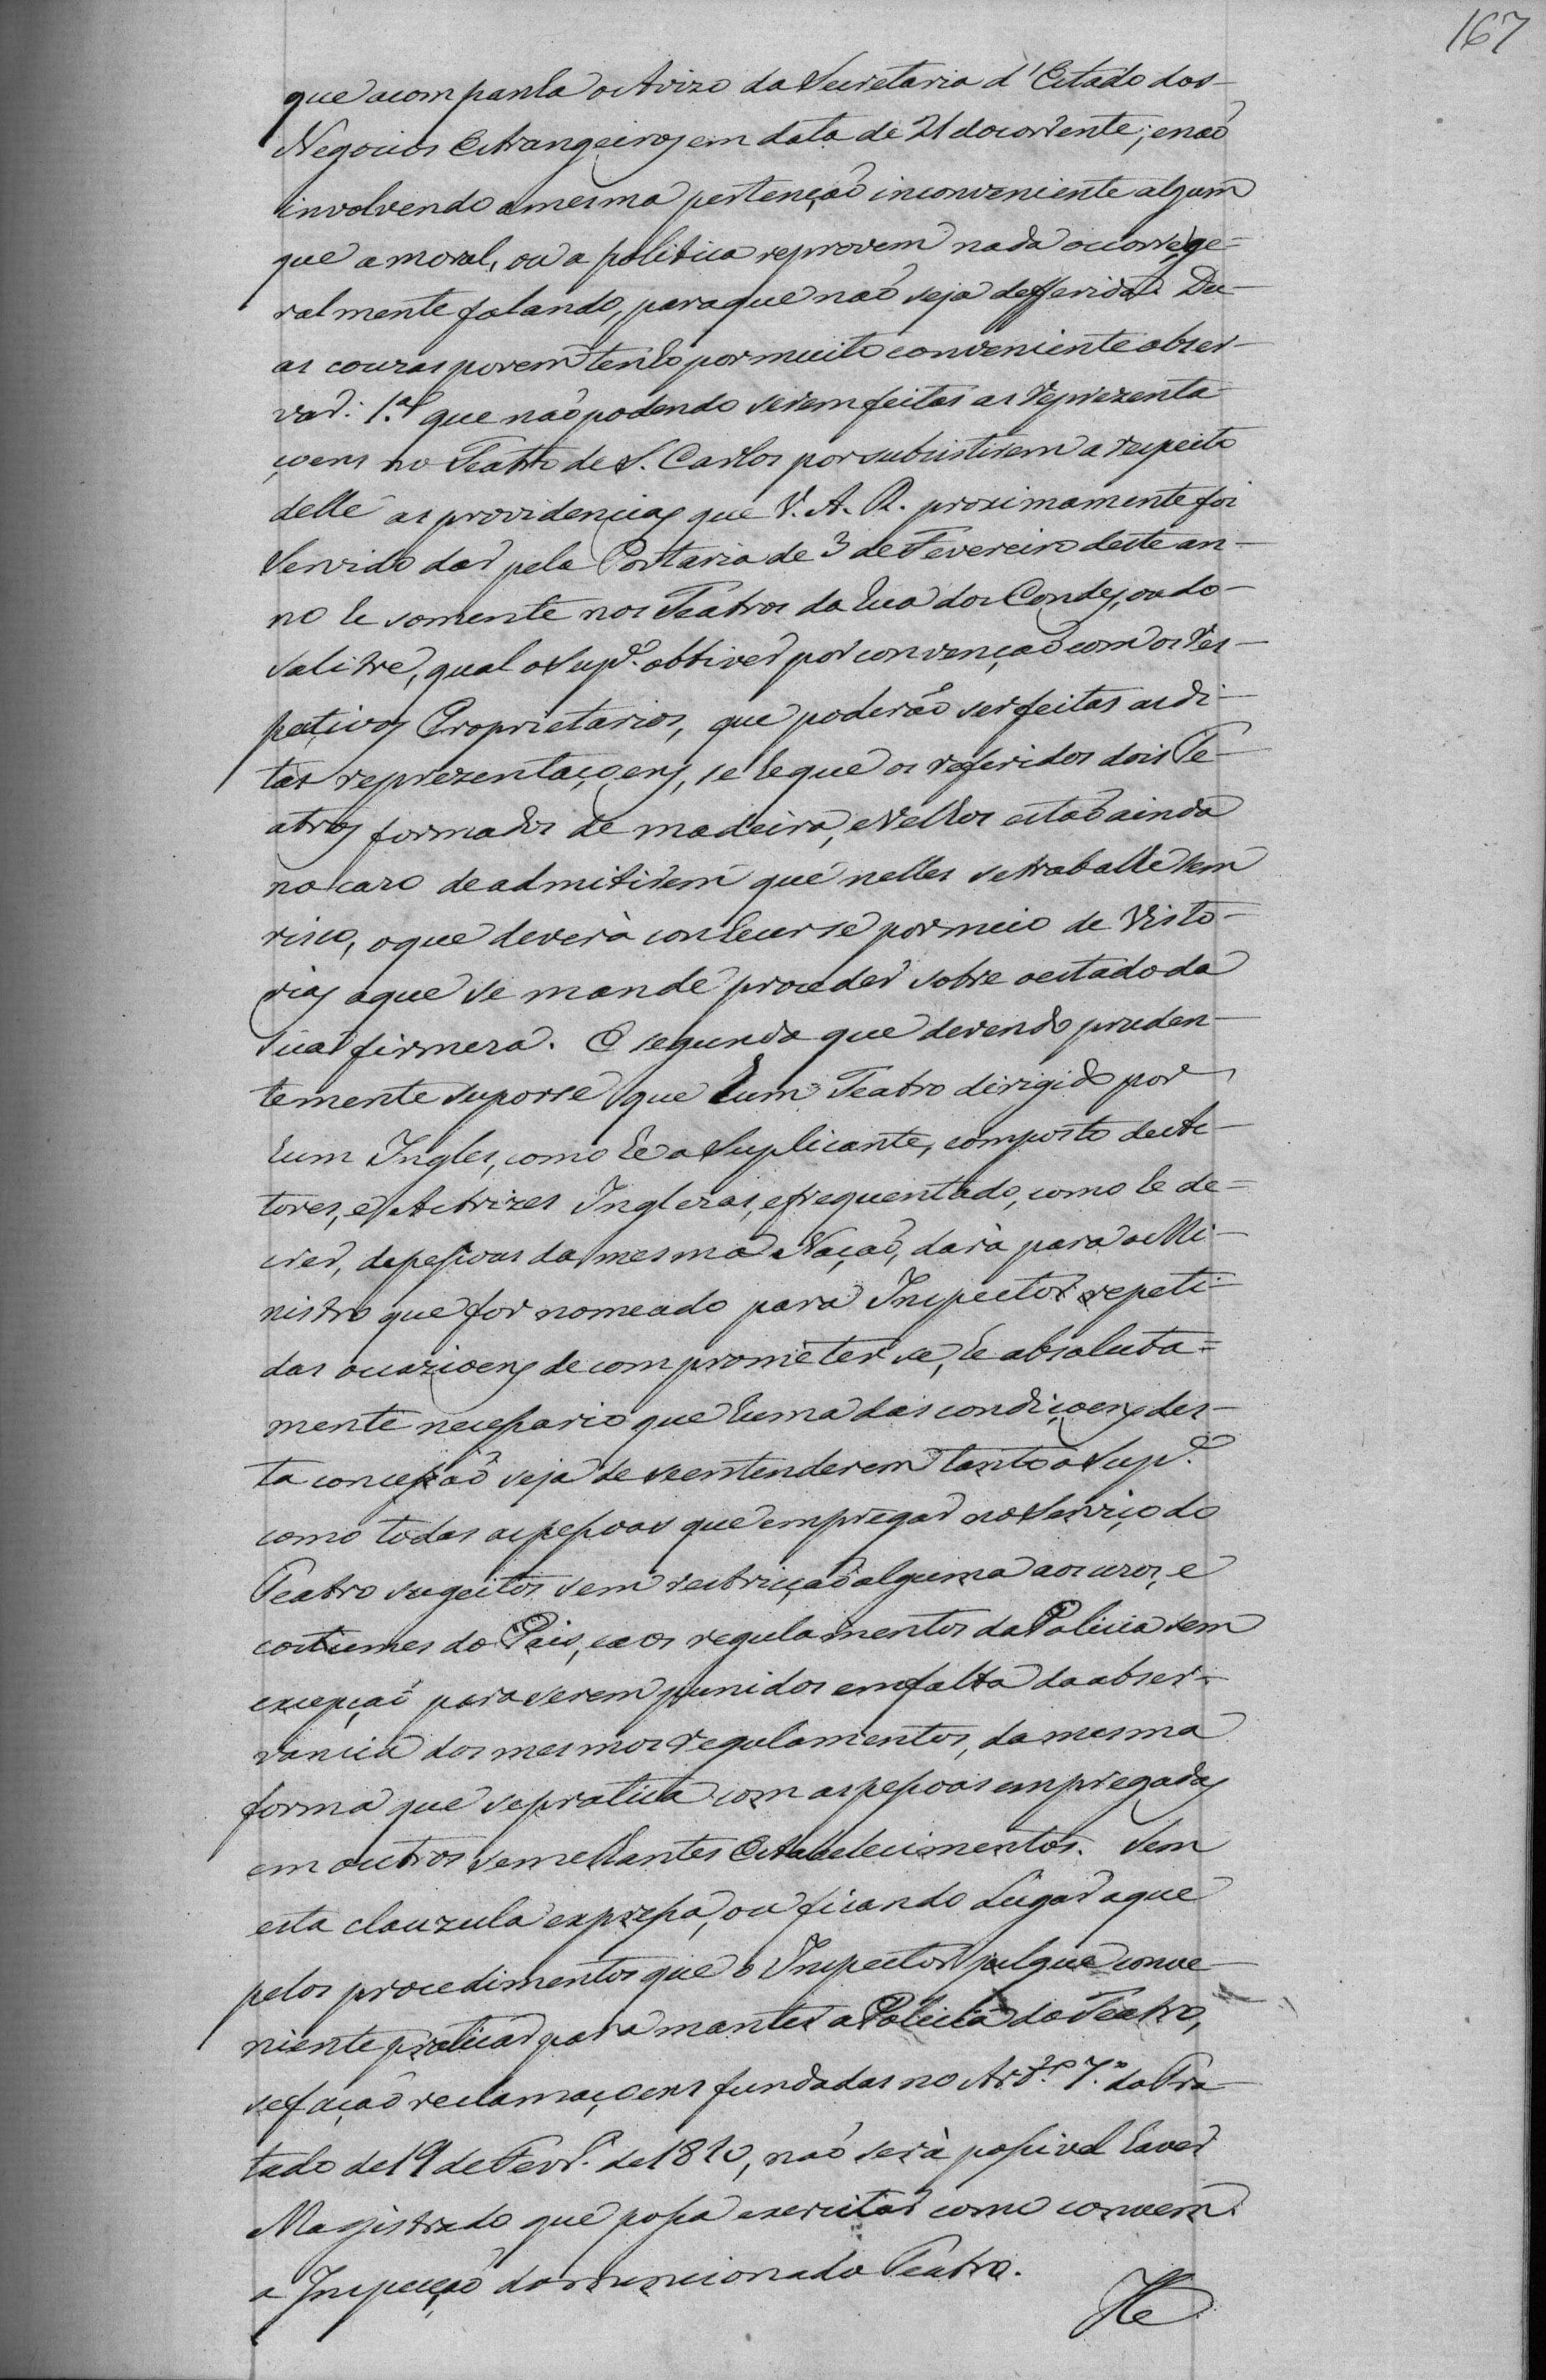 167
que acompanha o Avizo da Secretaria d'Estado dos
Negocios Estrangeiros em data de 21 do corrente; e naõ
involvendo a mesma pertençaõ inconveniente algum
que a moral, ou a politica reprovem nada ocorre, ge=
ralmente falando, para que naõ seja defferida. Du-
as couzas porem tenho por muito conveniente obser-
var: 1.ª que naõ podendo serem feitas as reprezenta
çoens no Teatro de S. Carlos por subsistirem a respeito
delle as providencias que V. A. R. proximamente foi
Servido dar pela Portaria de 3 de Fevereiro deste an-
no he somente nos Teatros da Rua dos Condes, ou do
Salitre, qual o Sup.e obtiver por convençaõ com os res-
pectivos Proprietarios, que poderaõ ser feitas as di-
tas reprezentaçoens, se he que os referidos dois Te-
atros formados de madeira, e velhos estaõ ainda
no cazo de admitirem que nelles se trabalhe sem
risco, o que deverà conhecerse por meio de Visto-
rias a que se mande proceder sobre o estado da
sua firmeza. E segunda que devendo pruden-
temente suporse que hum Teatro dirigido por
hum Ingles, como he o Suplicante, composto de Ac-
tores, e Actrizes Inglezas, e frequentado, como he de
crer, de pessoas da mesma Naçaõ, darà para o Mi-
nistro que for nomeado para Inspector repeti-
das ocazioens de comprometer se, he absoluta=
mente necessario que huma das condiçoens des-
ta concessaõ seja de se entenderem tanto o Sup.e
como todas as pessoas que empregar no Serviço do
Teatro sugeitos sem restricçaõ alguma aos uzos, e
costumes do Pais, e aos regulamentos da Policia sem
excepçaõ para serem punidos em falta da obser-
vancia dos mesmos regulamentos, da mesma
forma que se pratica com as pessoas empregadas
em outros semelhantes Estabelecimentos. Sem
esta clauzula expressa, ou ficando Lugar a que
pelos procedimentos que o Inspector julgue conve-
niente praticar para manter a Policia do Teatro,
se façaõ reclamaçoens fundadas no Art.º 7.º do Tra
tado de 19 de Fevr.º de 1810, naõ serà possivel haver
Magistrado que possa exercitar como convem
a Inspecçaõ do mencionado Teatro.
He